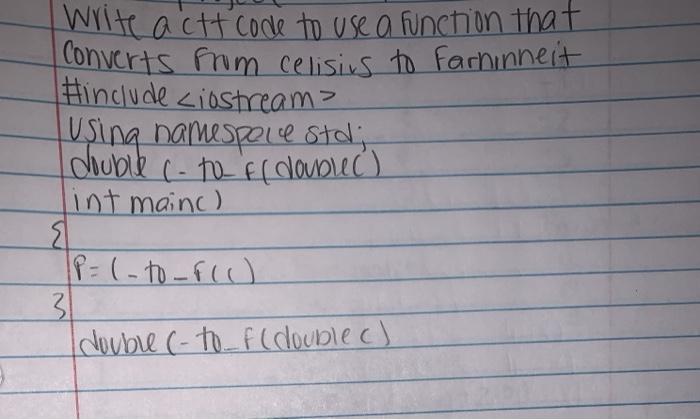 Write a c++ code to use a function that
Converts from celisius to Farhinneit
#include <iostream>
Using namespace std;
double c-to-f(double c)
int main()
{
f=c-to-f(c)
}
double c-to-f(double c)